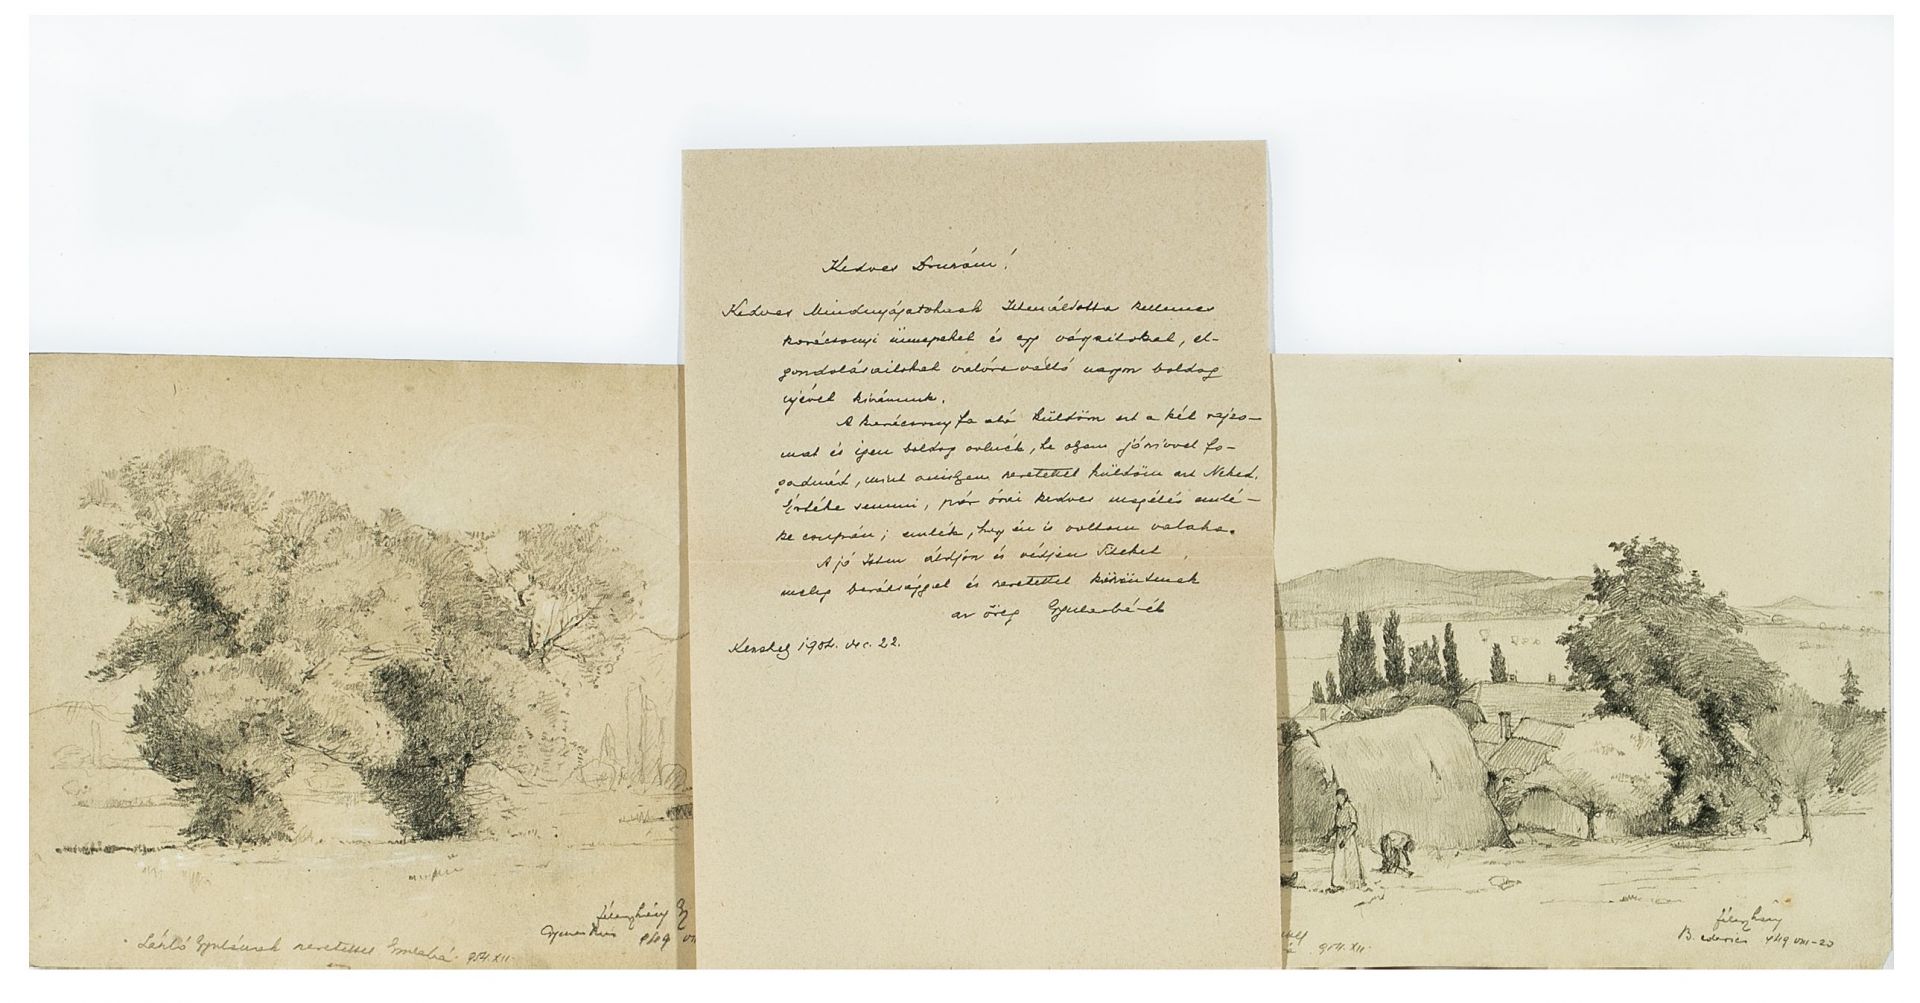 Kedves Druzám!
Kedves Mindnyájatoknak Istenáldotta kellemes
karácsonyi ünnepeket és egy vágyaitokat, el-
gondolásaitokat valóra váltó nagyon boldog
ujévet kivánunk.
A karácsonyfa alá küldöm ezt a két rajzo-
mat és igen boldog volnék, ha olyan jószivvel fo-
gadnád, mint amilyen szeretettel küldöm azt Neked.
Értéke semmi, pár órai kedves megélés emlé-
ke csupán; emlék, hogy én is voltam valaha.
A jó Isten áldjon és védjen Titeket
meleg barátsággal és szeretettel köszöntenek
az öreg Gyulabá-ék
Keszthely 1954. dec. 22.
László Gyulának szeretettel Gyulabá 954.XII.
949
954.XII.
B. ederics 949 VIII-20